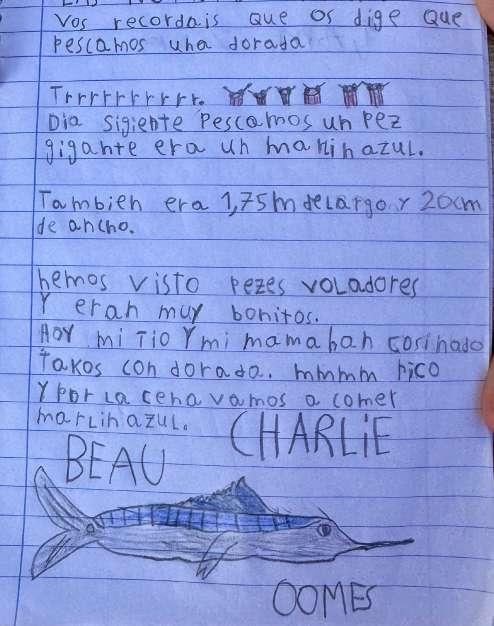 Vos recordais que os dige que
pescamos una dorada
Trrrrrrrrrr.
Dia sigiente pescamos un pez
gigante era un marlin azul.
Tambien era 1,75m de largo y 20cm
de ancho.
hemos visto pezes voladores
Y eran muy bonitos.
Hoy mi tio Y mi mama han cosinado
takos con dorada. mmmm rico
Y por la cena vamos a comer
marlin azul.
CHARLiE
BEAU
OOMES